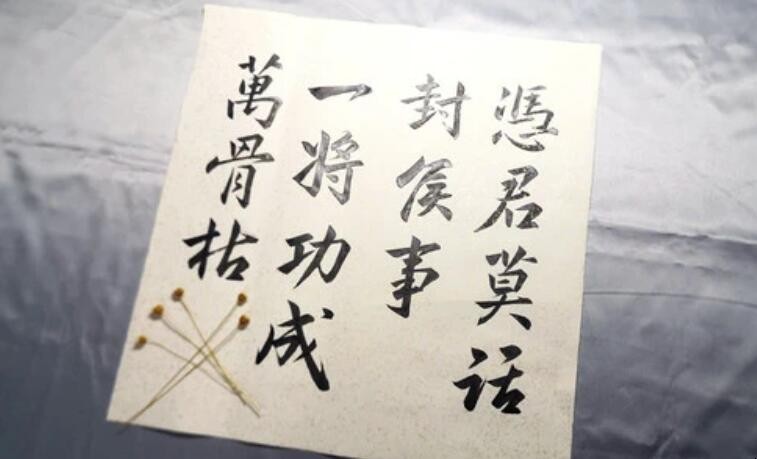 憑君莫话
封侯事
一将功成
萬骨枯